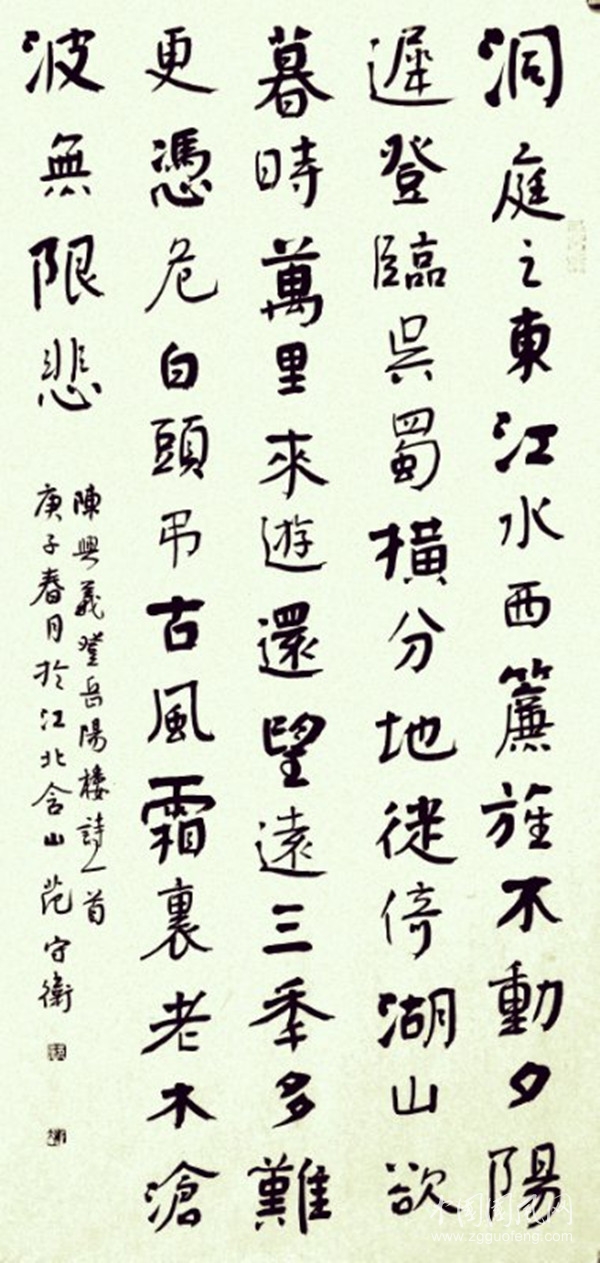 洞庭之東江水西簾旌不動夕陽
遲登臨吳蜀橫分地徙倚湖山欲
暮時萬里來遊還望遠三秊多難
更憑危白頭吊古風霜裏老木滄
波無限悲
陳與義登岳陽樓詩一首
庚子春月於江北含山范守衛
中国国风网
www.zgguofeng.com